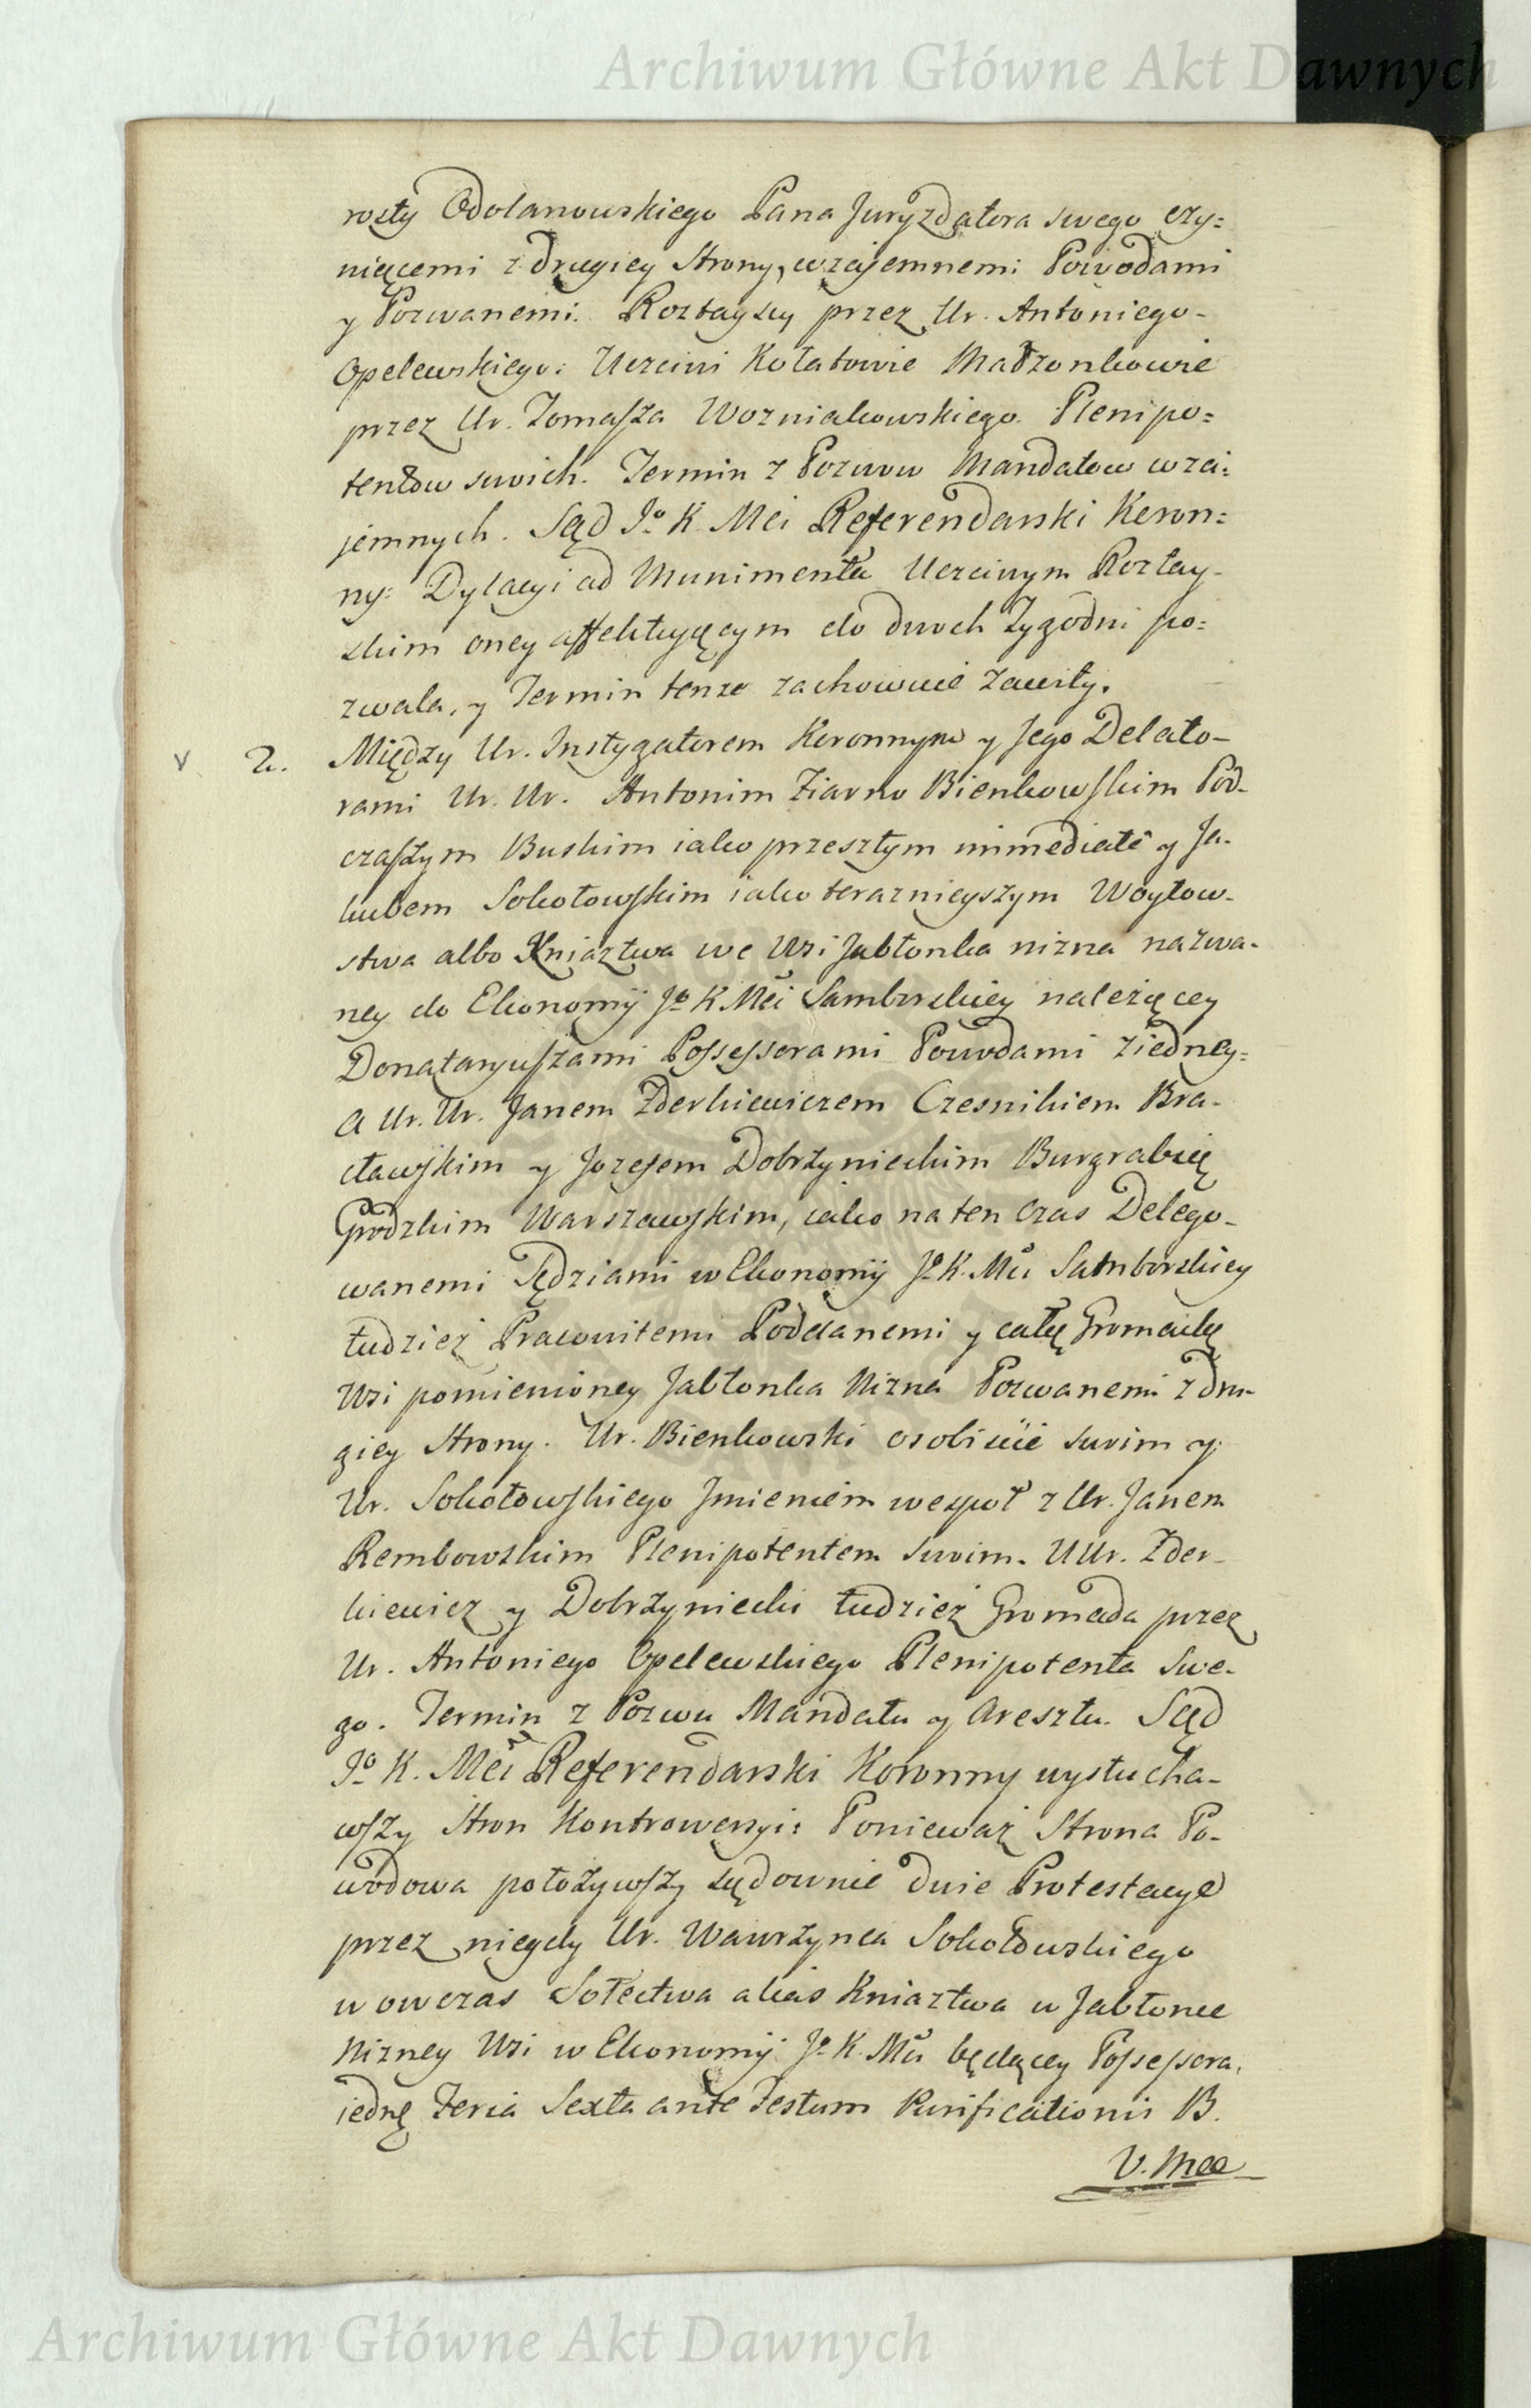 Archiwum Główne Akt Dawnych
rosty Odolanowskiego Pana Juryzdatora swego czy=
niącemi z drugiey Strony, wzajemnemi Powodami
y Pozwanemi. Roztayscy przez Ur. Antoniego
Opelewskiego: Uczciwi Kołatowie Małżonkowie
przez Ur. Tomaszа Wozniakowskiego Plenipo=
tentow swoich. Termin z Pozwow Mandatow wzai=
jemnych. Sąd Jo K Mci Referendarski Koron=
ny: Dylacyi ad Munimenta Uczciwym Roztay-
skim oney affektuiącym do dwoch Tygodni po=
zwala, y Termin tenze zachowuie zawity.
v 2. Między Ur. Instygatorem Koronnym y Jego Delato-
rami Ur. Ur. Antonim Ziarno Bienkowskim Pod-
czaszym Buskim iako przeszłym immediatè y Ja-
kubem Sokołowskim iako teraznieyszym Woytow-
stwa albo Kniaztwa we Wsi Jabłonka nizna nazwa-
ney do Ekonomij Jo K Mci Samborskiey należącey
Donataryuszami Possessorami Powodami ziedney=
a Ur. Ur. Janem Zderkiewiczem Czesnikiem Bra-
cławskim y Jozefem Dobrzynieckim Burgrabią
Grodzkim Warszawskim, iako na ten czas Delego-
wanemi Sędziami w Ekonomij Jo K. Mci Samborskiey
tudzież Pracowitemi Poddanemi y całą Gromadą
Wsi pomienioney Jabłonka Nizna Pozwanemi z dru-
giey Strony. Ur. Bienkowski osobiście swoim y
Ur. Sokołowskiego Jmieniem wespoł z Ur. Janem
Rembowskim Plenipotentem swoim. UUr. Zder-
kiewicz y Dobrzyniecki tudzież Gromada przez
Ur. Antoniego Opelewskiego Plenipotenta swe-
go. Termin z Pozwu Mandatu y Aresztu. Sąd
Jo K. Mci Referendarski Koronny wysłucha-
wszy Stron Kontrowersyi: Ponieważ Strona Po-
wodowa położywszy sądownie dwie Protestacye
przez niegdy Ur. Wawrzynca Sokołowskiego
w owczas Sołectwa alias Kniaztwa w Jabłonce
Nizney Wsi w Ekonomij Jo K. Mci będącey Possessora,
iedną Feria Sexta ante Festum Purificationis B.
V. Mae
Archiwum Główne Akt Dawnych